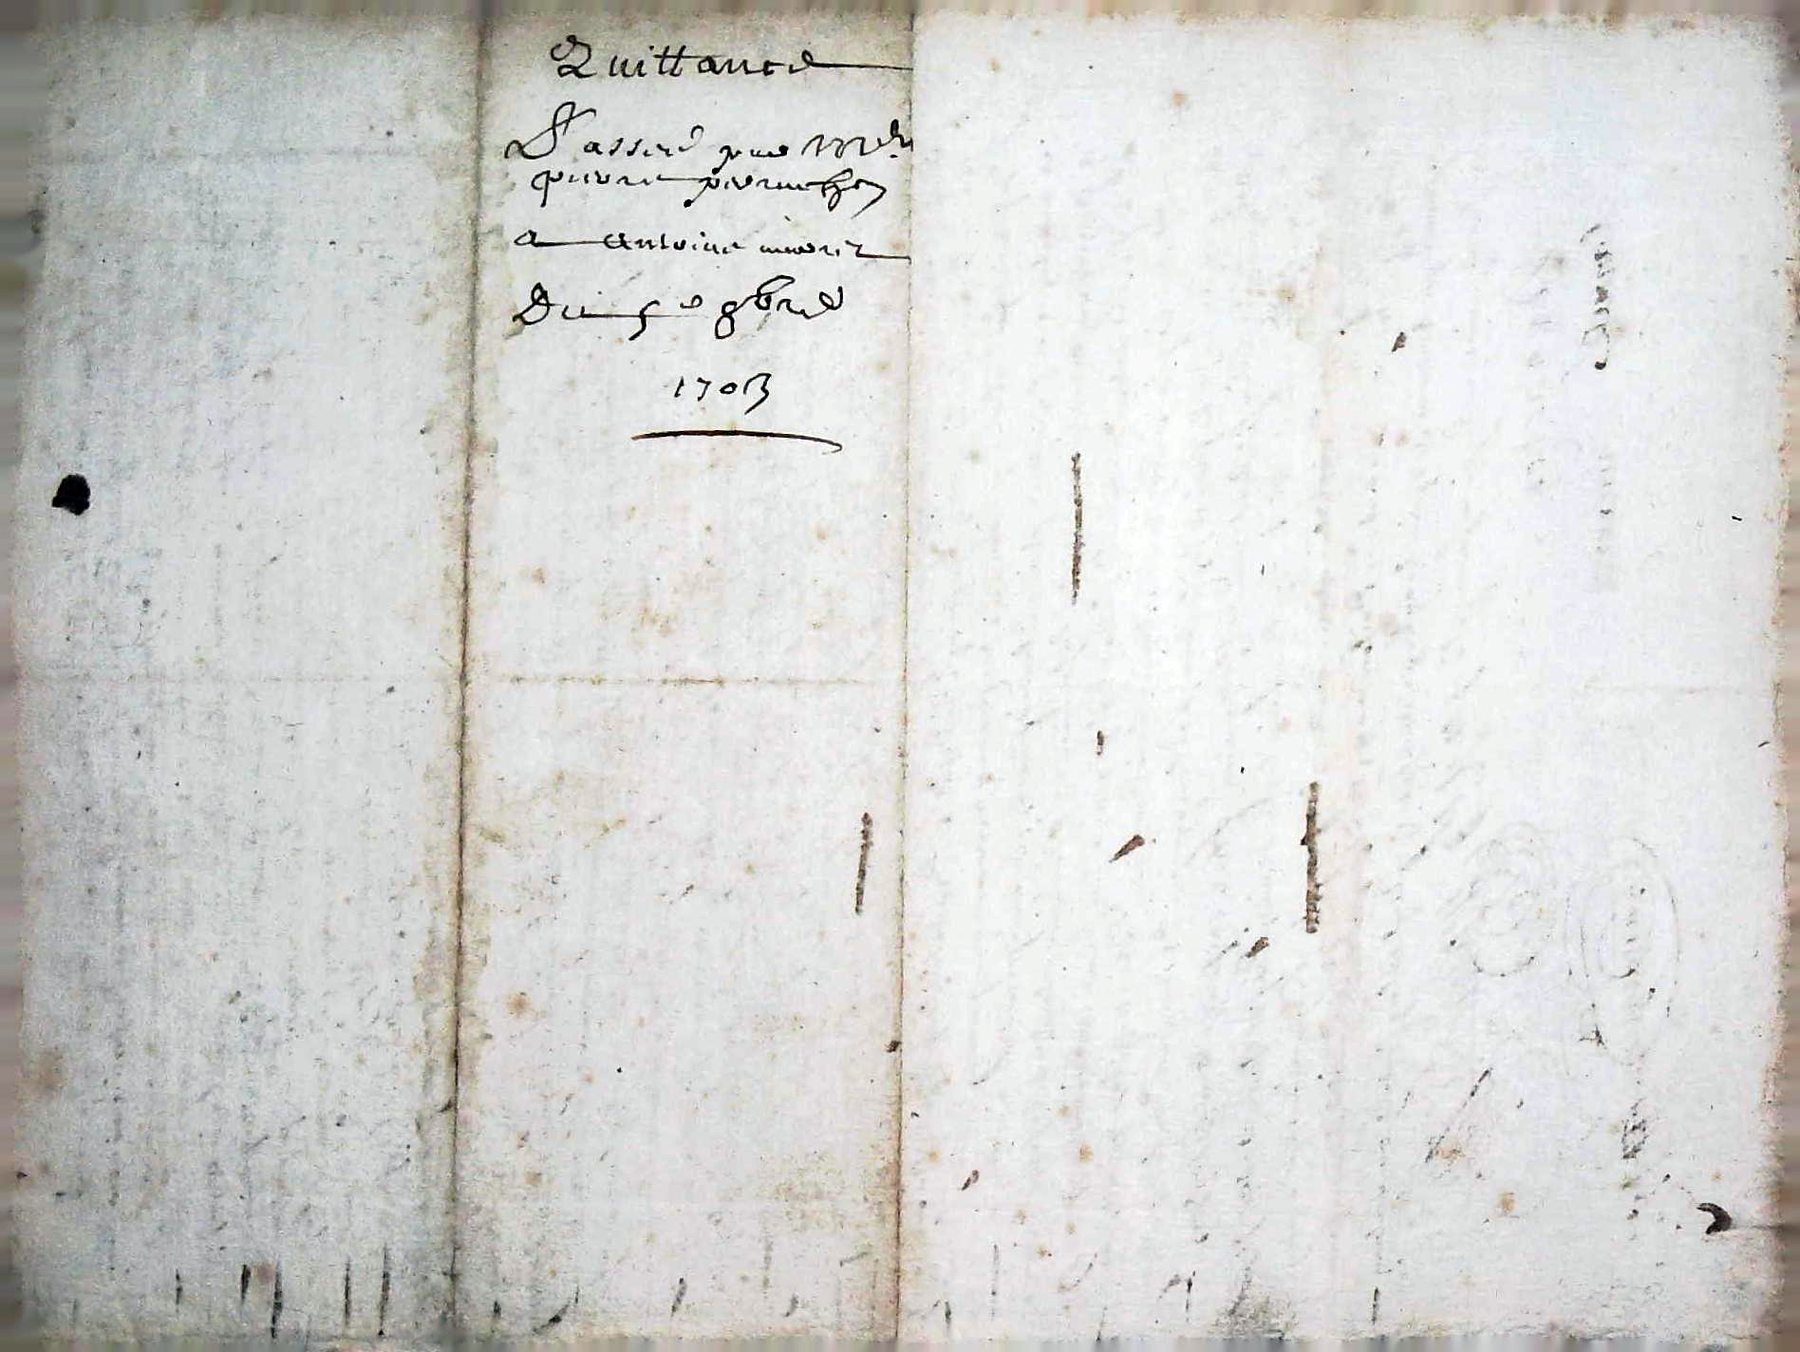 Quittance
Passée par Me
pierre perrachon
a Antoine
Du 5e 9bre
1703